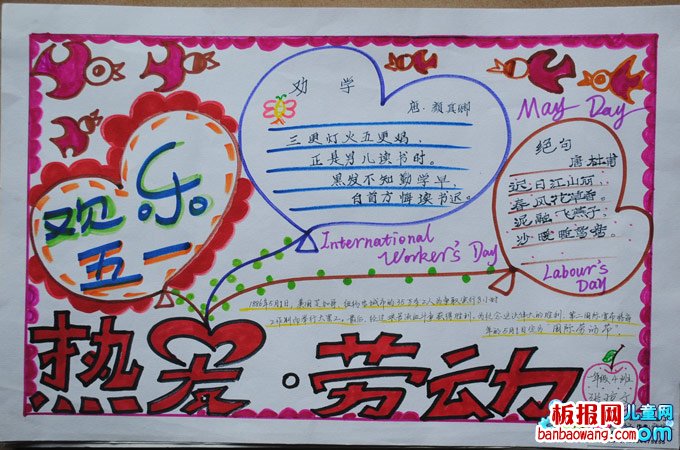 欢乐
五一
劝学
颜真卿
三更灯火五更鸡,
正是男儿读书时。
黑发不知勤学早,
白首方悔读书迟。
May Day
绝句
唐 杜甫
迟日江山丽,
春风花草香。
泥融飞燕子,
沙暖睡鸳鸯。
International
Worker's Day
Labour's
Day
1886年5月1日,美国芝加哥、纽约等城市的35万多工人为争取实行8小时
工作制而举行大罢工。最后,经过艰苦流血斗争获得胜利。为纪念这次伟大的胜利,第二国际宣布将每
年的5月1日定为"国际劳动节"。
热爱·劳动
年级4班
儿童网
板报网
banbaowang.com